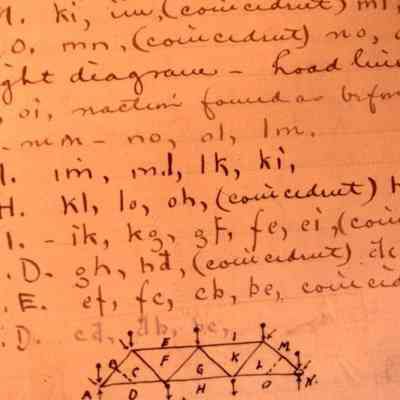 M. ki, im, (coincedent) ml,
O. mn, (coincedent) no, o
ght diagram - Load line
, oi, reaction found as before
- nm - no, ol, lm.
I. im, ml, lk, ki,
H. kl, lo, oh, (coincedent) h
I. - ik, kg, gf, fe, ei, (coin
. D. gh, hd, (coincedent) dc
. E. ef, fc, cb, be, coincid
. D. cd, db, bc,
B E I M
C F K L
G
A D H O N.